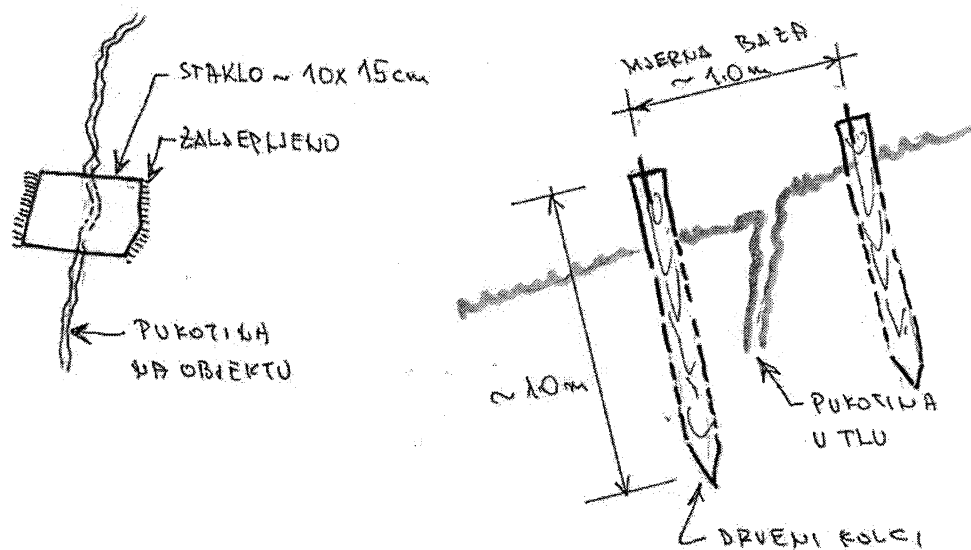 STAKLO ~ 10x15cm
ZALJEPLJENO
PUKOTINA
NA OBJEKTU
MJERNA BAZA
~ 1.0m
~ 1.0m
PUKOTINA
U TLU
DRVENI KOLCI